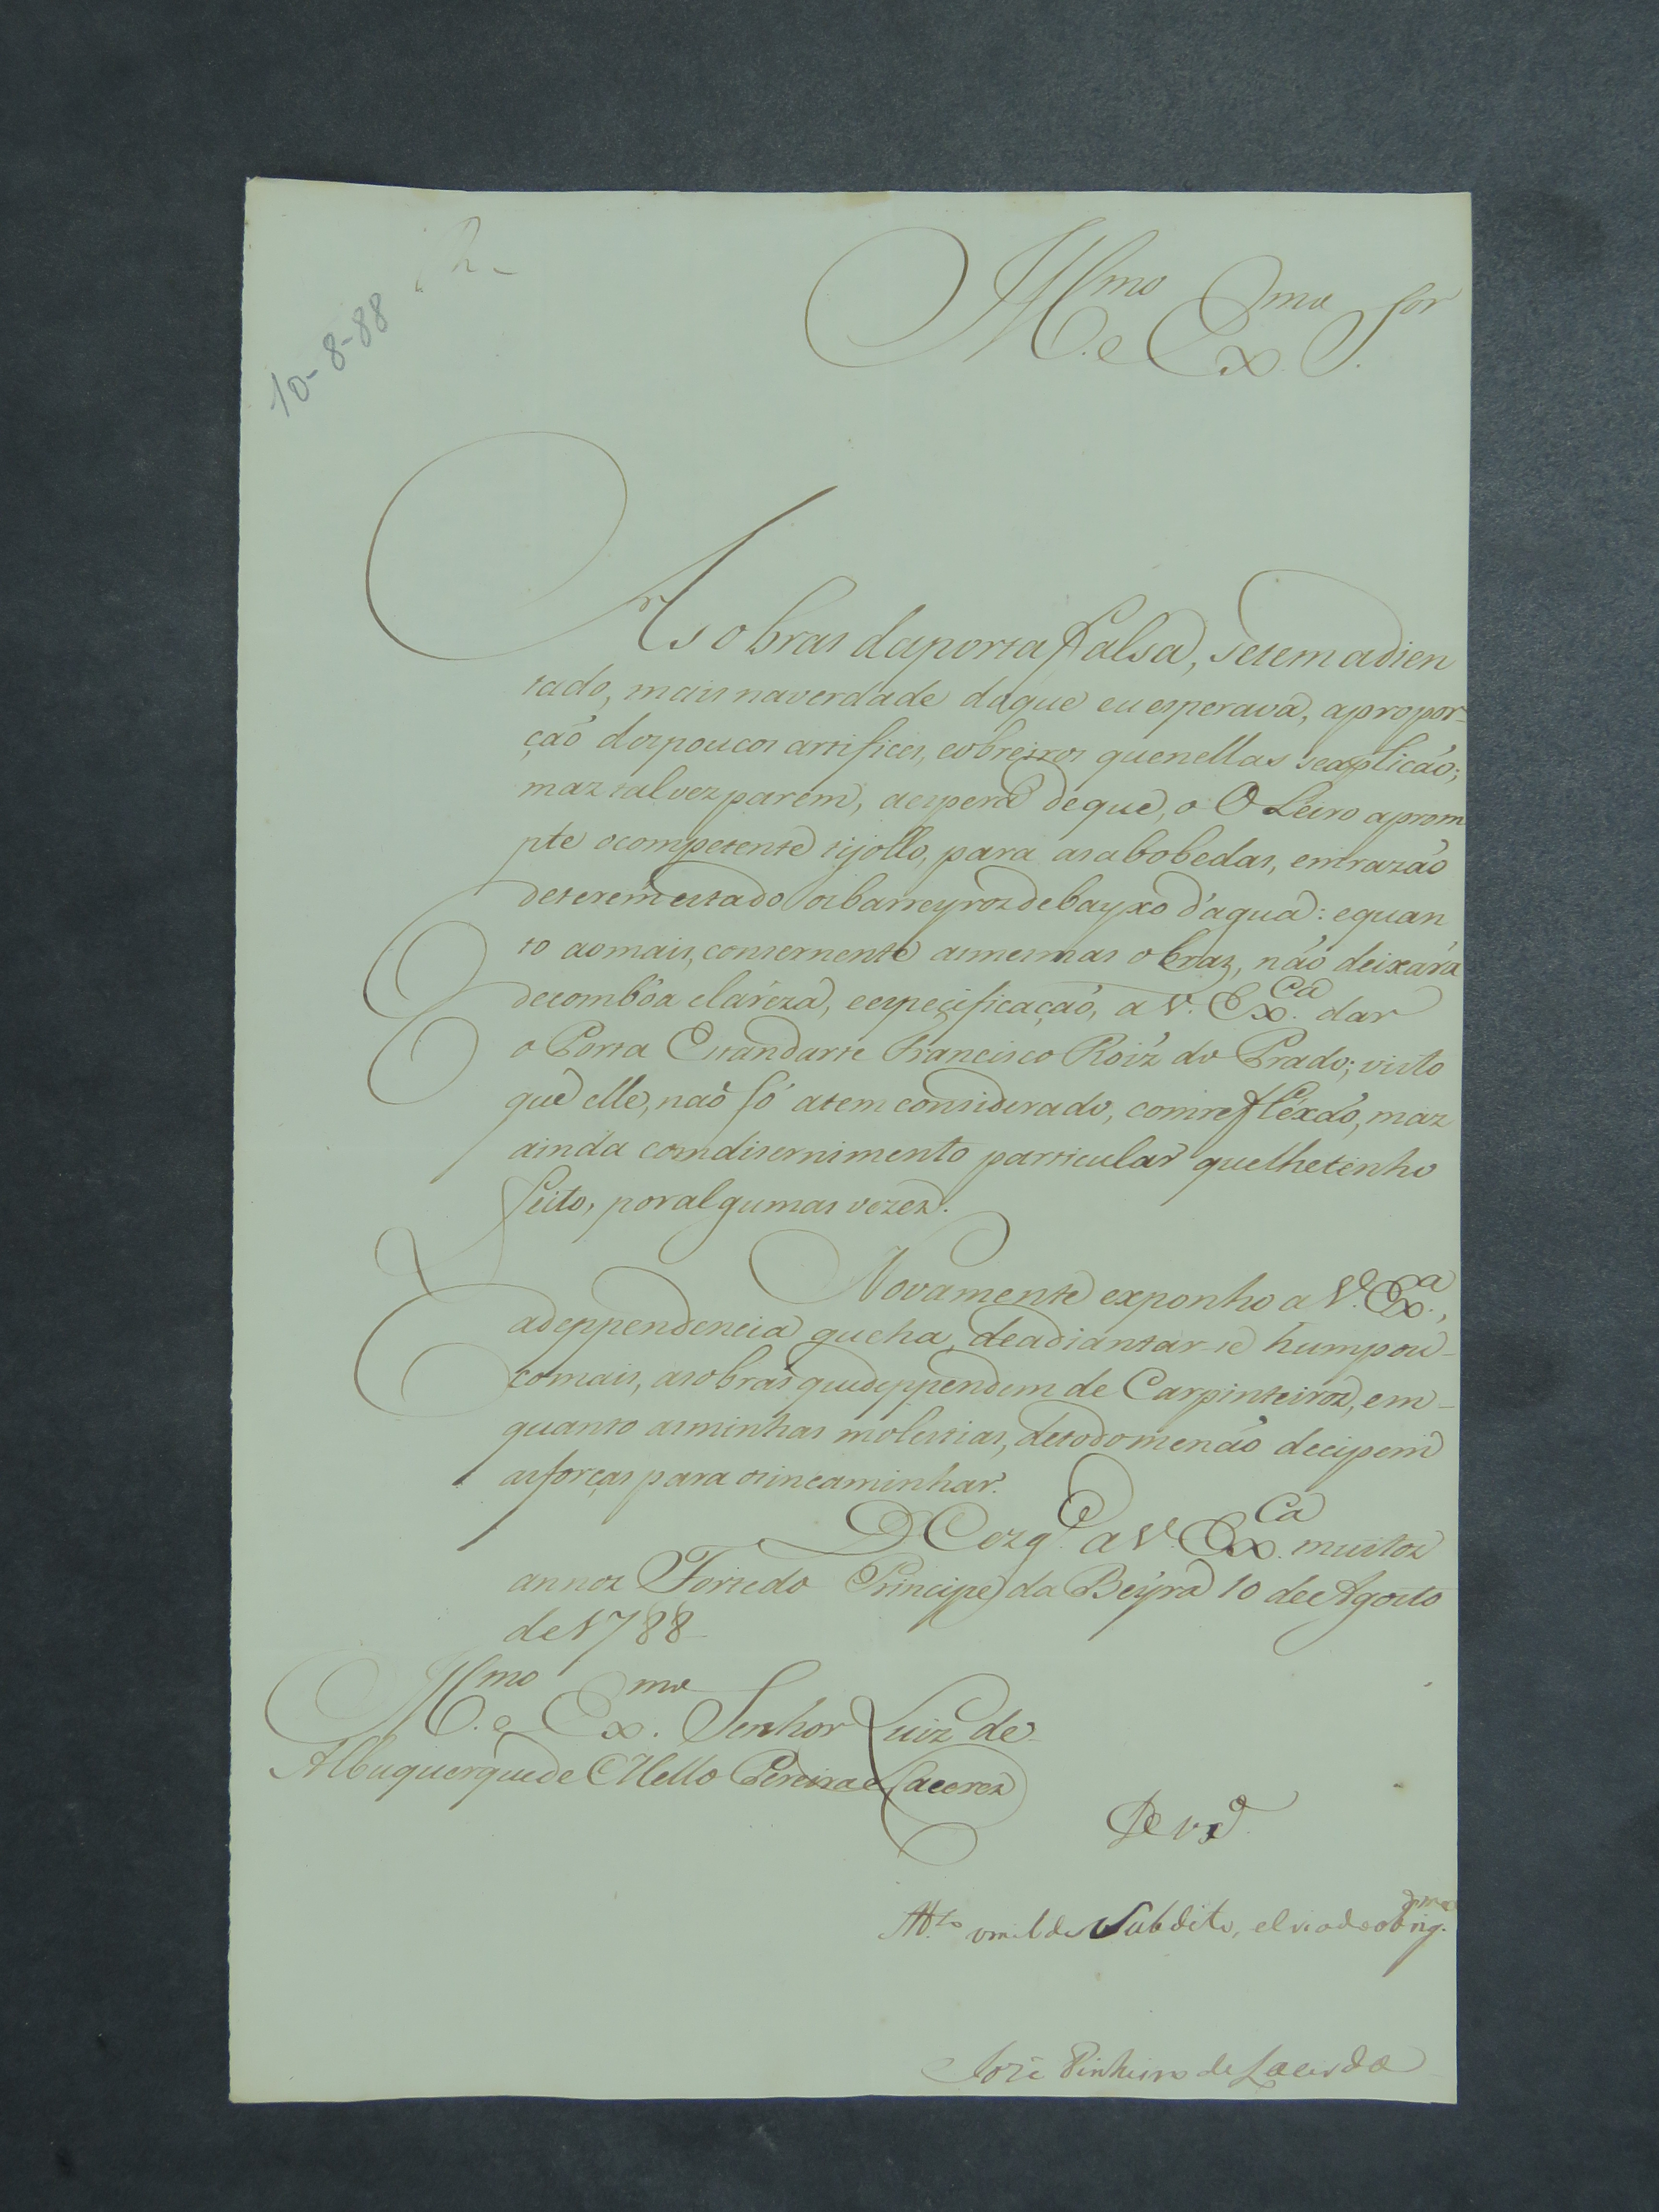 10-8-88
Ill.mo e Ex.mo S.or
As obras da porta falsa, se tem adien
tado, mais na verdade do que eu esperava, a propor-
ção dos poucos artifices, e obreiros que nellas se aplicão;
maz talvez parem, a espera de que, o Oleiro aprom
pte o competente tijollo, para as abobedas, em razão
de terem estado os barreyroz debayxo d'agua: e quan
to ao mais, consernente as mesmas obraz, não deixará
de com bôa clareza, e especificação, a V. Ex.ca dar
o Porta Estandarte Francisco Roiz do Prado; visto
que elle, não só a tem considerado, com reflexão, maz
ainda com disernimento particular que lhe tenho
feito, por algumas vezes.
Novamente exponho a V. Ex.a,
a deppendencia que ha, de adiantar-se hum pou-
co mais, as obras que deppendem de Carpinteiros, em-
quanto as minhas molestias, de todo me não decipem
as forças para os incaminhar.
D Eoz g.e a V. Ex.ca muitoz
annoz Forte do Principe da Beyra 10 de Agosto
de 1788
Ill.mo e Ex.mo Senhor Luiz de
Albuquerque de Mello Pereira e Caceres
De V. Ex.ª
M.to umilde Subdito, e criado obrig.dmo
Jozé Pinheiro de Lacerda